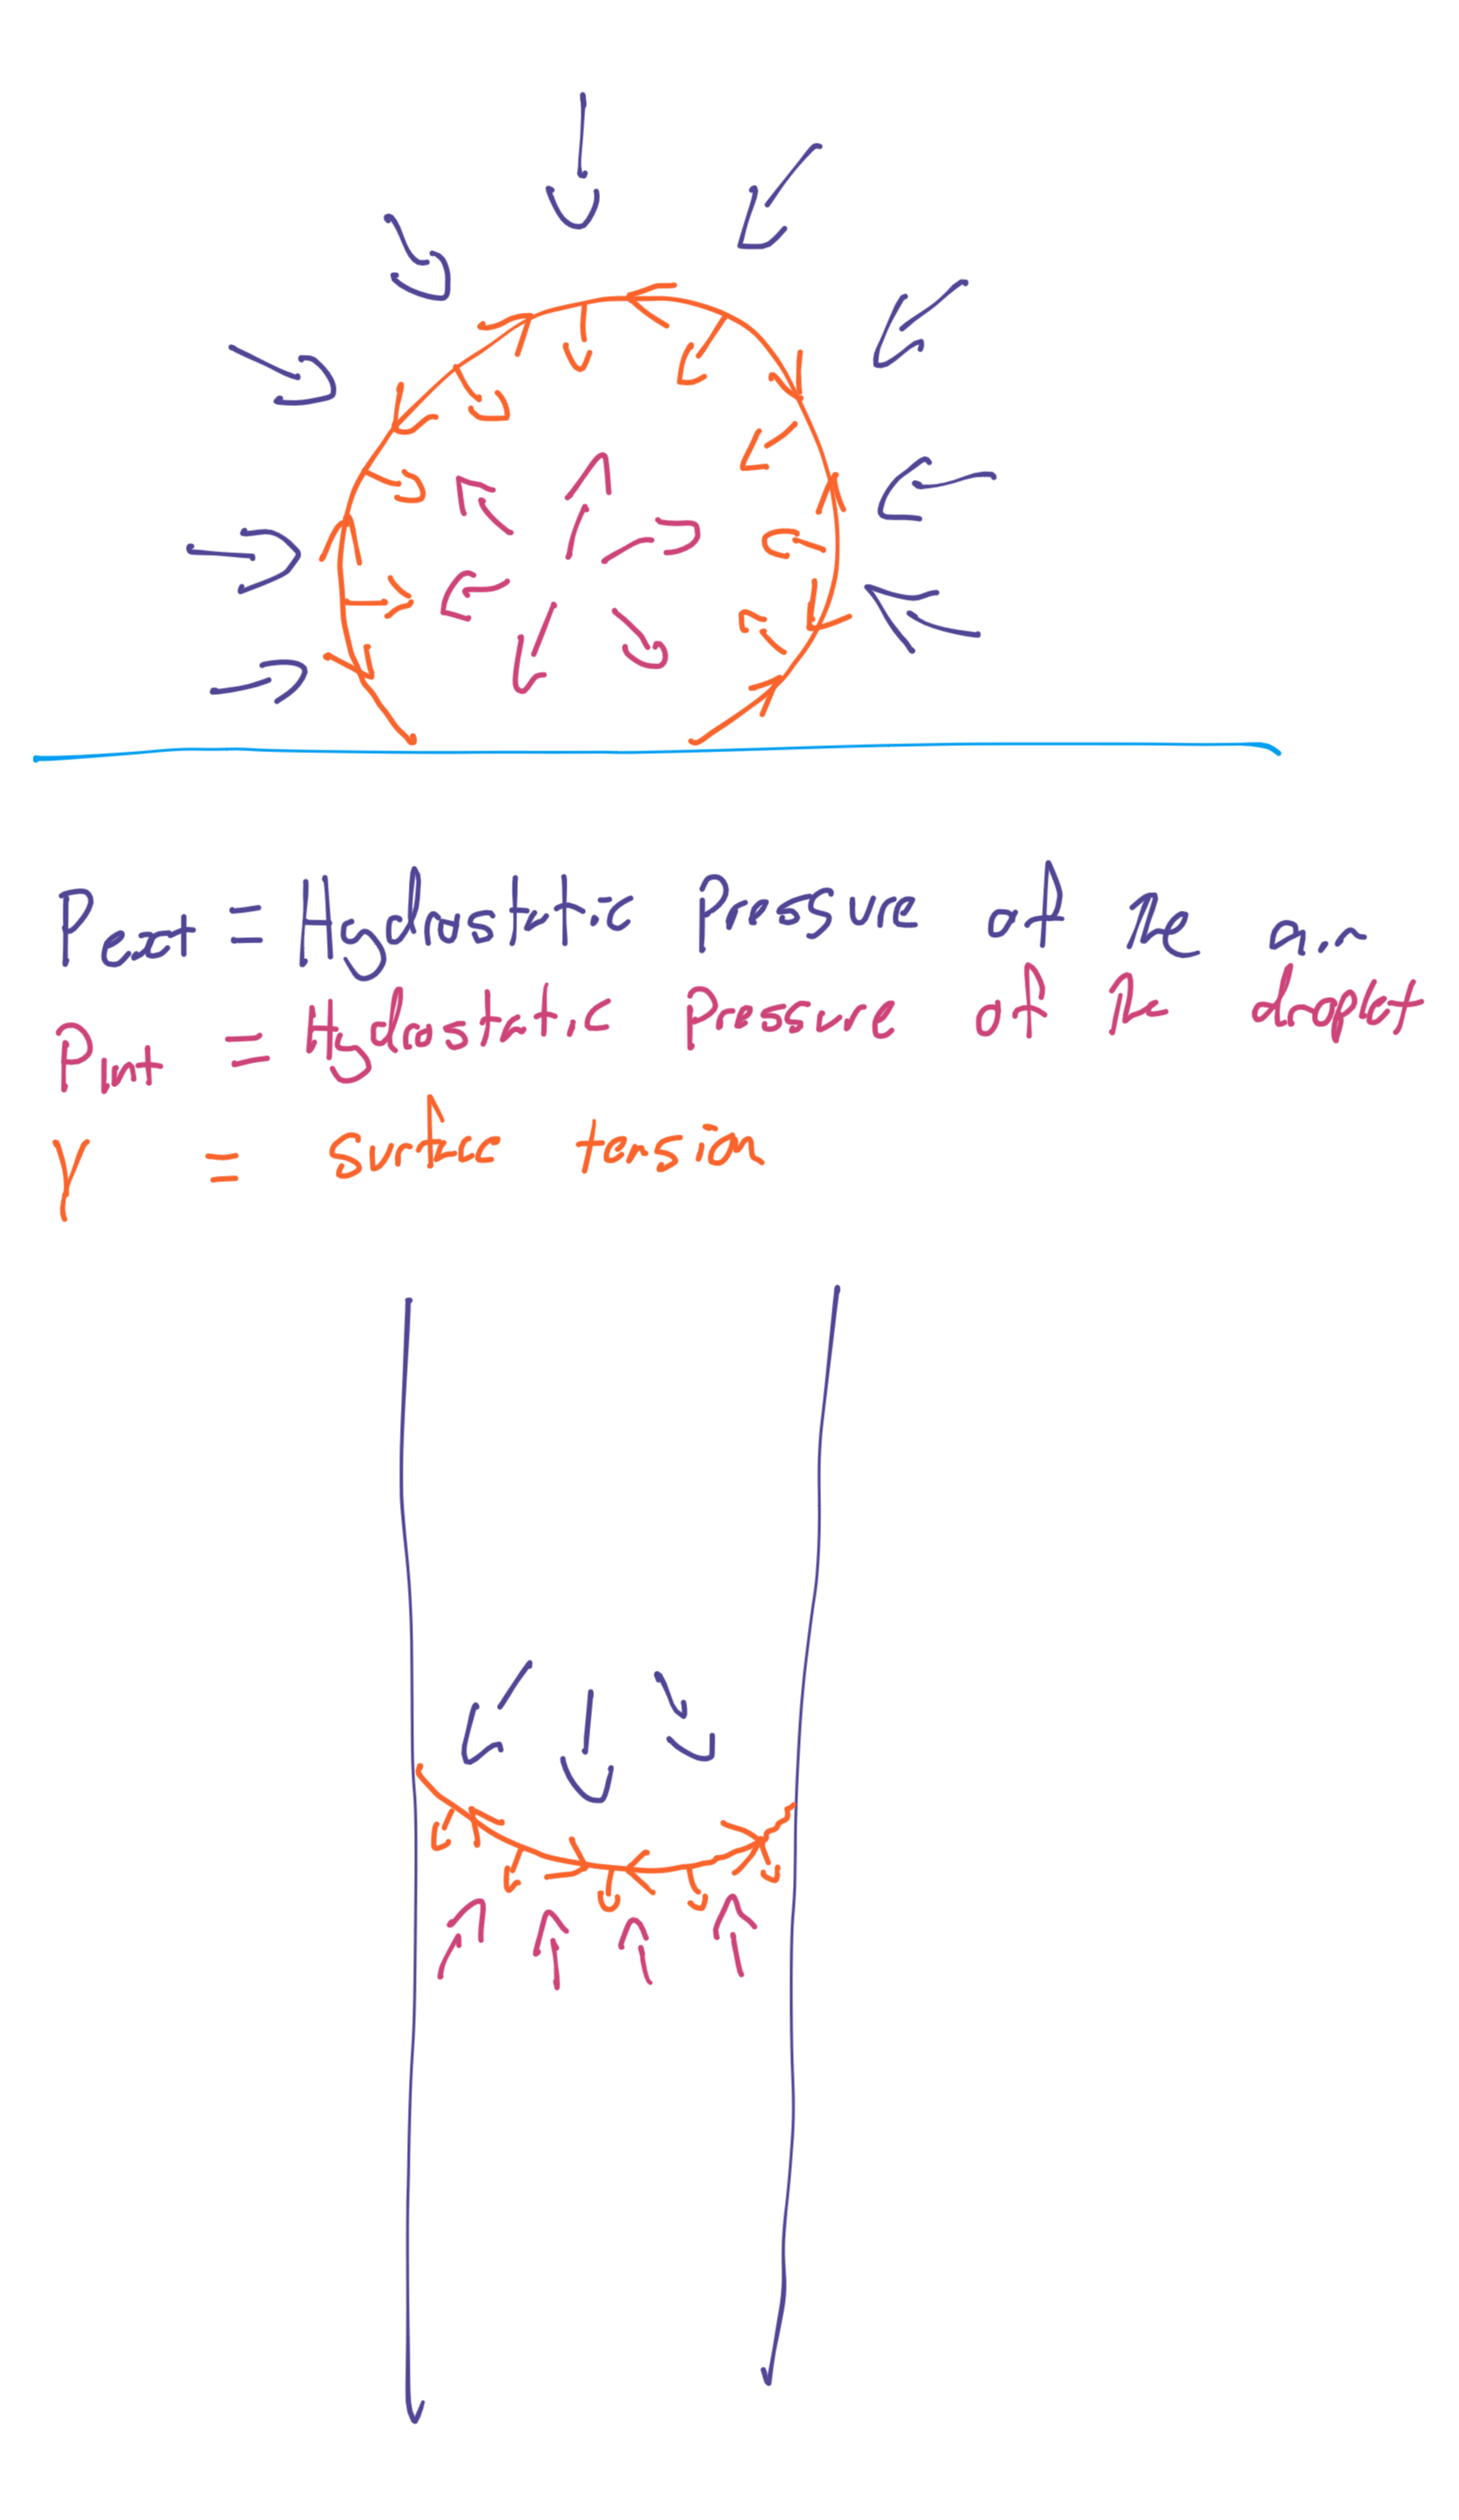 Pext = Hydrostatic Pressure of the air
Pint = Hydrostatic Pressure of the droplet
γ = surface tension